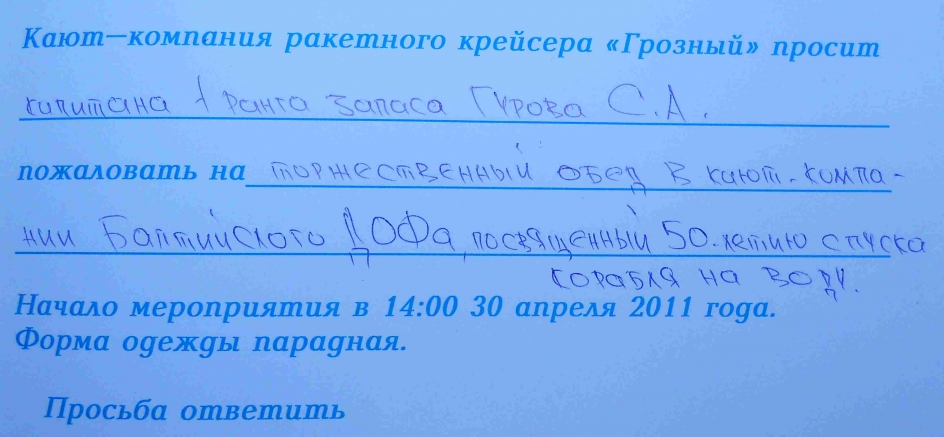 Кают—компания ракетного крейсера «Грозный» просит
капитана 1 ранга запаса Гурова С.А.
пожаловать на торжественный обед в кают-компа-
нии Балтийского ДОФа, посвященный 50-летию спуска
корабля на воду.
Начало мероприятия в 14:00 30 апреля 2011 года.
Форма одежды парадная.
Просьба ответить